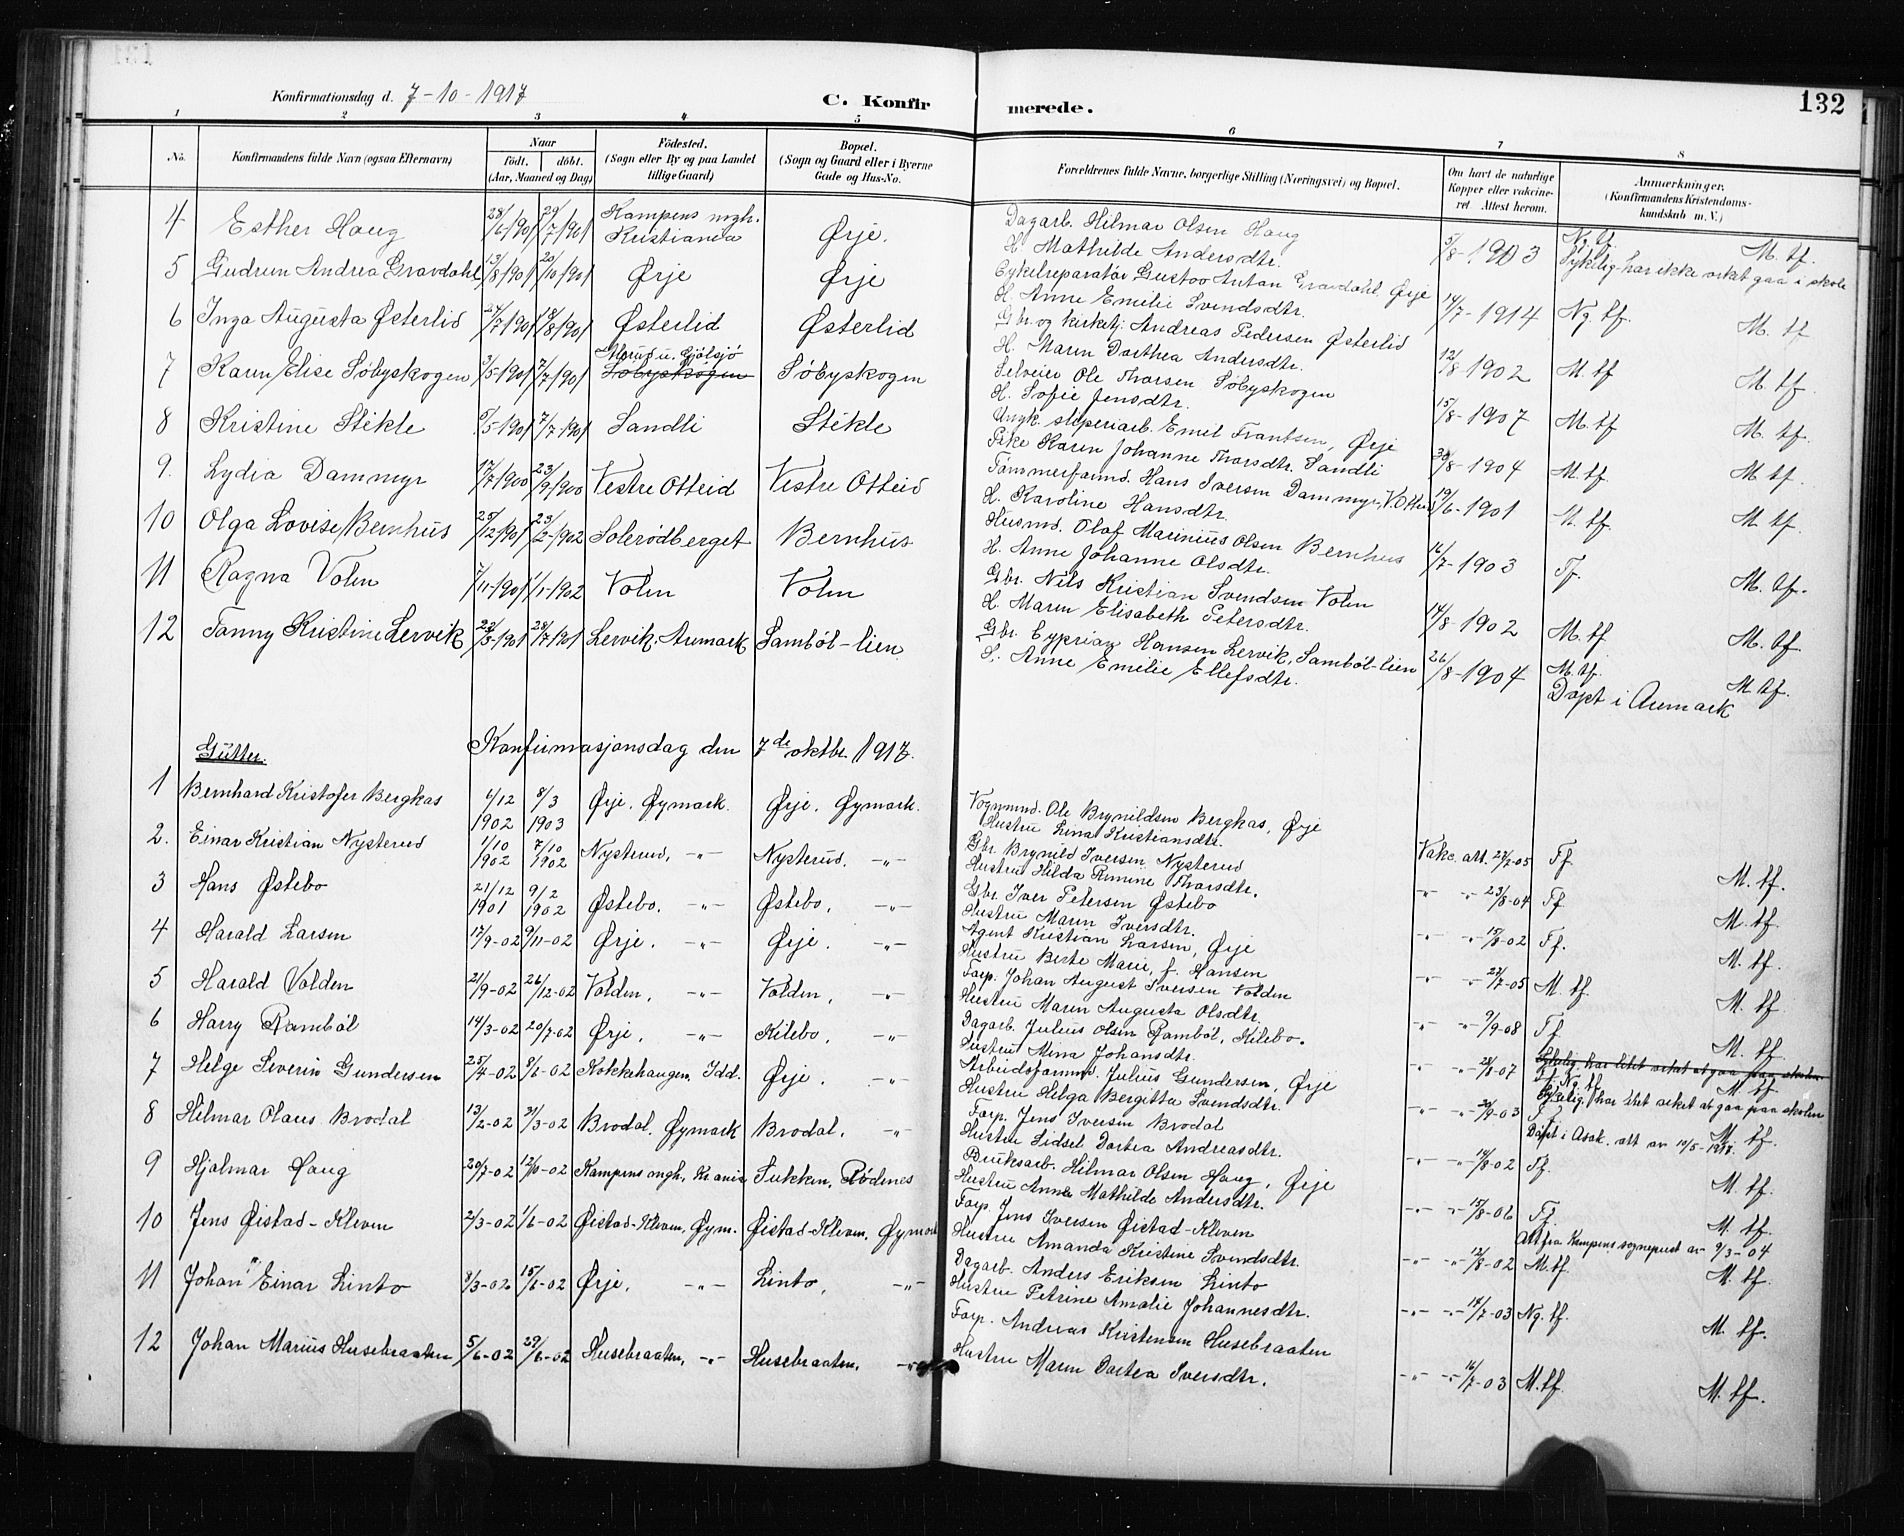 Konfirmationsdag d. 7-10-1917
C. Konfirmerede.
132
1 2 3 4 5 6 7 8
No. Konfirmandens fulde Navn (ogsaa Efternavn) Naar födt. döbt. (Aar, Maaned og Dag) Födested. (Sogn eller By og paa Landet tillige Gaard) Bopæl. (Sogn og Gaard eller i Byerne Gade og Hus-No. Forældrenes fulde Navne, borgerlige Stilling (Næringsvei) og Bopæl. Om havt de naturlige Kopper eller vakcineret Attest herom. Anmærkninger. (Konfirmandens Kristendomskundskab m. V.)
4 Esther Haug 28/6-1901 29/7-1901 Kampens mgh. Kristiania Ørje. Dagarb. Hilmar Olsen Haug
H. Mathilde Andersdtr. 5/8-1903 Ng. tf. M. tf.
Sykelig-har ikke orket gaa i skole
5 Gudrun Andrea Gravdahl 13/8-1901 20/10-1901 Ørje Ørje Cykelreparatør Gustav Antan Gravdahl, Ørje
H. Anne Emelie Svendsdtr. 14/7-1914 Ng. tf. M. tf
6 Inga Augusta Østerlid 24/7-1901 18/8-1901 Østerlid Østerlid Gbr. og kirketj. Andreas Pedersen Østerlid
H. Maren Dorthea Andersdtr. 12/8-1902 M. tf M. tf.
7 Karen Elise Söbyskogen 3/5-1901 7/7-1901 u. Gjölsjö Söbyskogen Söbyskogen Selveier Ole Thorsen Söbyskogen
H. Sofie Jensdtr. 15/8-1907 M. tf M. tf.
8 Kristine Stikle /5-1901 7/7-1901 Sandli Stikle Ungk. sliperiarb. Emil Frantsen, Ørje
Pike Karen Johanne Thorsdtr. Sandli 30/8-1904 M. tf. M. tf.
9. Lydia Dammyr 17/7-1900 23/9-1900 Vestre Otteid Vestre Otteid Tømmerformd. Hans Iversen Dammyr, V. Otteid
H. Karoline Hansdtr. 19/6-1901 M. tf. M. tf.
10 Olga Lovise Bernhus 25/12-1901 23/2-1902 Solerödberget Bernhus Husmd. Olaf Marinius Olsen Bernhus
H. Anne Johanne Olsdtr. 16/7-1903 Tf. M. tf.
11 Ragna Volen 7/11-1901 1/1-1902 Volen Volen Gbr. Nils Kristian Svendsen Volen
H. Maren Elisabeth Petersdtr. 14/8-1902 M. tf. M. tf.
12 Fanny Kristine Lervik 22/3-1901 28/7-1901 Lervik, Aremark Samböl-lien Gbr. Cyprian Hansen Lervik, Samböl-lien
H. Anne Emelie Ellefsdtr. 26/8-1904 M. tf. M. tf.
Döpt i Aremark
Gutter. Konfirmasjonsdag den 7de oktbr. 1917.
1 Bernhard Kristofer Bergkas 6/12 1902 8/3 1903 Ørje, Øymark. Ørje, Øymark. Vognmnd. Ole Brynildsen Bergkas, Ørje
Hustru Lina Kristiansdtr. Vakc. att. 27/7-05 Tf. M. tf.
2. Einar Kristian Nysterud 1/10 1902 7/10 1902 Nysterud, -"- Nysterud. -"- Gbr. Brynild Iversen Nysterud
Hustru Hilda Thorsdtr. -"- -"- 23/8-04 Tf M. tf.
3 Hans Østebo 21/12 1901 9/2 1902 Østebo, -"- Østebo, -"- Gbr. Iver Petersen Østebo
Hustru Maren Iversdtr. -"- -"- 15/8-02 Tf. M. tf.
4 Harald Larsen 17/9-02 9/11-02 Ørje. -"- Ørje. -"- Agent Kristian Larsen, Ørje
Hustru Berte Marie, f. Hansen -"- -"- 27/7-05 M. tf. M. tf.
5 Harald Volden 21/9-02 26/12-02 Volden, -"- Volden, -"- Forp. Johan August Iversen Volden
Hustru Maren Augusta Olsdtr. -"- -"- 9/9-08 Tf M. tf.
6 Harry Ramböl 14/3-02 20/7-02 Ørje, -"- Kilebo, -"- Dagarb. Julius Olsen Ramböl, Kilebo.
Hustru Mina Johansdtr. -"- -"- 28/8-07 Sykelig, har litet orket at gaa paa skolen
M. tf.
7 Helge Severin Gundersen 25/4-02 8/6-02 Kokkehaugen, Idd. Ørje. -"- Arbeidsformd. Julius Gundersen, Ørje
Hustru Helga Bergitta Svendsdtr. -"- -"- /9-03 Ng. tf.
Sykelig, har litet orket at gaa paa skolen
Döpt i Asak. att. av 10/5-1917. M. tf.
8 Hilmar Olaus Brodal 13/2-02 31/3-02 Brodal, Øymark Brodal, -"- Forp. Jens Iversen Brodal
Hustru Sidsel Dortea Andreasdtr. -"- -"- /8-02 Tf. M. tf.
9 Hjalmar Haug 20/7-02 12/10-02 Kampens mgh, Kr.ania Sukken, Rödenes Bruksarb. Hilmar Olsen Haug, Ørje
Hustru Anne Mathilde Andersdtr. -"- -"- 15/8-06 Tf M. tf.
Att. fra Kampens sogneprest av 9/3-04
10 Jens Øistad-Kleven 2/3-02 1/6-02 Øistad-Kleven, Øym. Øistad-Kleven, Øymark Forp. Jens Iversen Øistad-Kleven
Hustru Amanda Kristine Svendsdtr. -"- -"- 12/8-02 M. tf. M. tf.
11 Johan Einar Linto 8/3-02 15/6-02 Ørje, -"- Linto, -"- Dagarb. Anders Eriksen Linto
Hustru Petrine Amalie Johannesdtr. -"- -"- 14/7-03 Ng. tf. M. tf.
12 Johan Marius Husebraaten 5/6-02 29/6-02 Husebraaten, -"- Husebraaten, -"- Forp. Andreas Kristensen Husebraaten
Hustru Maren Dortea Iversdtr. -"- -"- 16/7-03 M. tf. M. tf.